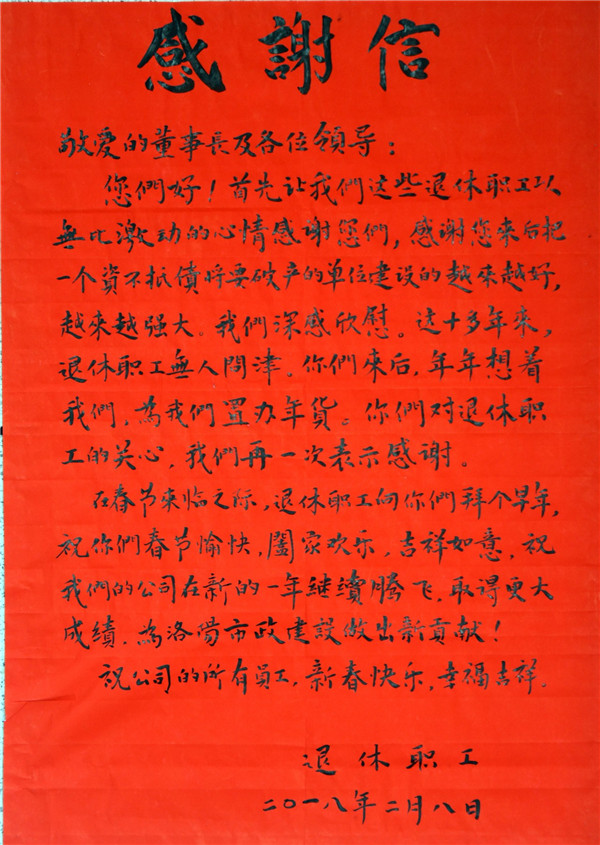 感謝信
敬爱的董事長及各位領导：
您們好！首先让我們这些退休职工以
無比激动的心情感谢您們，感谢您来后把
一个資不抵債将要破产的单位建设的越来越好，
越来越强大。我們深感欣慰。这十多年来，
退休职工無人問津。你們来后，年年想着
我們，為我們置办年货。你們对退休职
工的关心，我們再一次表示感谢。
在春节来临之际，退休职工向你們拜个早年，
祝你們春节愉快，闔家欢乐，吉祥如意，祝
我們的公司在新的一年继續腾飞，取得更大
成績，為洛陽市政建設做出新貢献！
祝公司的所有員工，新春快乐，幸福吉祥。
退休职工
二〇一八年二月八日